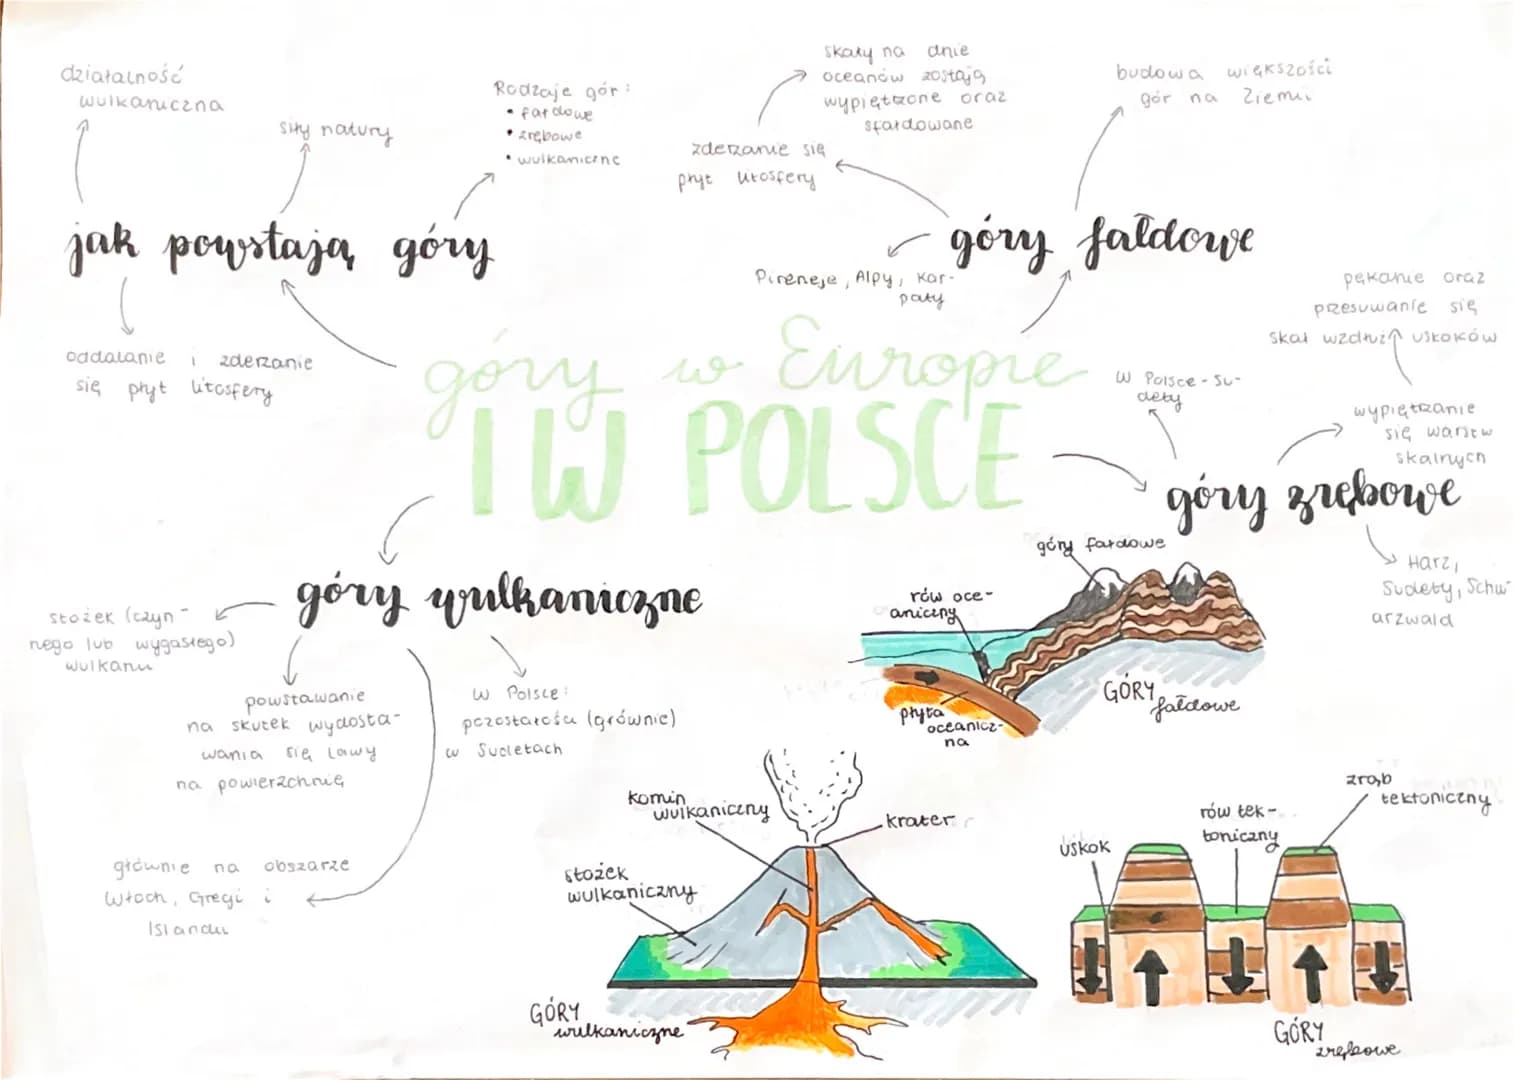 działalność
wulkaniczna
siły natury
Rodzaje gór:
• fałdowe
• zrębowe
• wulkaniczne
jak powstają góry
oddalanie i zderzanie
się płyt litosfery
skały na dnie
oceanów zostają
wypiętrzone oraz
sfałdowane
zderzanie się
płyt litosfery
budowa większości
gór na Ziemi
góry fałdowe
Pireneje, Alpy, Kar-
paty
góry w Europie
I W POLSCE
pękanie oraz
przesuwanie się
skał wzdłuż uskoków
W Polsce - Su-
dety
wypiętrzanie
się warstw
skalnych
góry zrębowe
Harz,
Sudety, Schw
arzwald
góry wulkaniczne
stożek (czyn-
nego lub wygasłego)
wulkanu
powstawanie
na skutek wydosta-
wania się lawy
na powierzchnię
w Polsce:
pozostałości (głównie)
w Sudetach
głównie na obszarze
Włoch, Grecji i
Islandii
góry fałdowe
rów oce-
aniczny
płyta
oceanicz-
na
GÓRY
fałdowe
komin
wulkaniczny
krater
stożek
wulkaniczny
GÓRY
wulkaniczne
zrąb
tektoniczny
rów tek-
toniczny
uskok
GÓRY
zrębowe